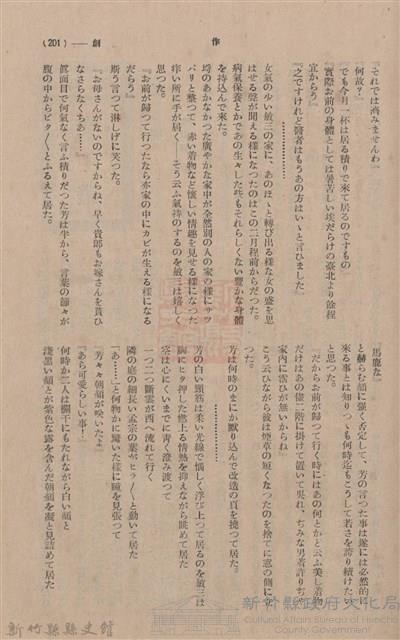 (201)——創作
『それでは濟みませんわ
『何故?』
『でも今月一杯は居る積りで來て居るのですもの』
『實際お前の身體としては暑苦しい埃だらけの臺北より餘程
宜からう』
『之ですけれど醫者はもうあの方はいゝと言ひました』
………………………………
女氣の少い敏三の家に、あのほゝと轉び出る樣な女の盛を思
はせる聲が聞える樣になつたのはこの二月程前からだつた。
病氣保養とかであの生々した些もそれらしくない豐かな身體
を持込んで來た。
埒のあかなかつた廣やかな家中が全然別の人の家の樣にサツ
パリと整つて、赤い着物など懷しい情趣を見せる樣になつた
痒い所に手が屆く——そう云ふ氣持のするのを敏三は嬉しく
思つた。
『お前が歸つて行つたなら亦家の中にカビが生える樣になる
だらう』
斯う言つて淋しげに笑つた。
『お母さんがないのですからね、早く貴郎もお嫁さんを貰ひ
なさらなくちあ……』
眞面目で何氣なく言ふ積りだつた芳は半から、言葉の節々が
腹の中からピタ〳〵とふるえて居た。
『馬鹿な』
と赫らむ顔に强く否定して、芳の言つた事は遂には必然的に
來る事とは知りつゝも何時迄もこうして若さを誇り續けたい
と思つた。
『だからお前が歸つて行く時にはあの何とかと云ふ美しい着物
だけはあの儘二階に掛けて置いて吳れ、ぢみな男着許りぢや
家內に雷ひが無いからね』
こう云ひながら彼は煙草の短くなつたのを捨てに窓の側に立
つた。
芳は何時のまにか默り込んで改造の頁を撓つて居た。
………………………………
芳の白い頸筋は柔い光線で惱しく浮び上つて居るのを敏三は
胸にヒタ押した燃上る情熱を抑えながら眺めて居た
空は心にくいまでに靑く澄み渡つて
一つ二つ斷雲が西へ流れて行く
隣の庭の細長い孟宗の葉がヒラ〳〵と動いて居た
『あ……』と何物かに驚いた樣に瞳を見張つて
『芳々々朝顔が咲いたよ』
『あら可愛らしい事!』
何時か二人は欄干にもたれながら白い顔と
淺黑い顔とが紫色な露を含んだ朝顔を凝と見詰めて居た
新竹縣縣史館
新竹縣政府文化局
Cultural Affairs Bureau of Hsinchu
County Government